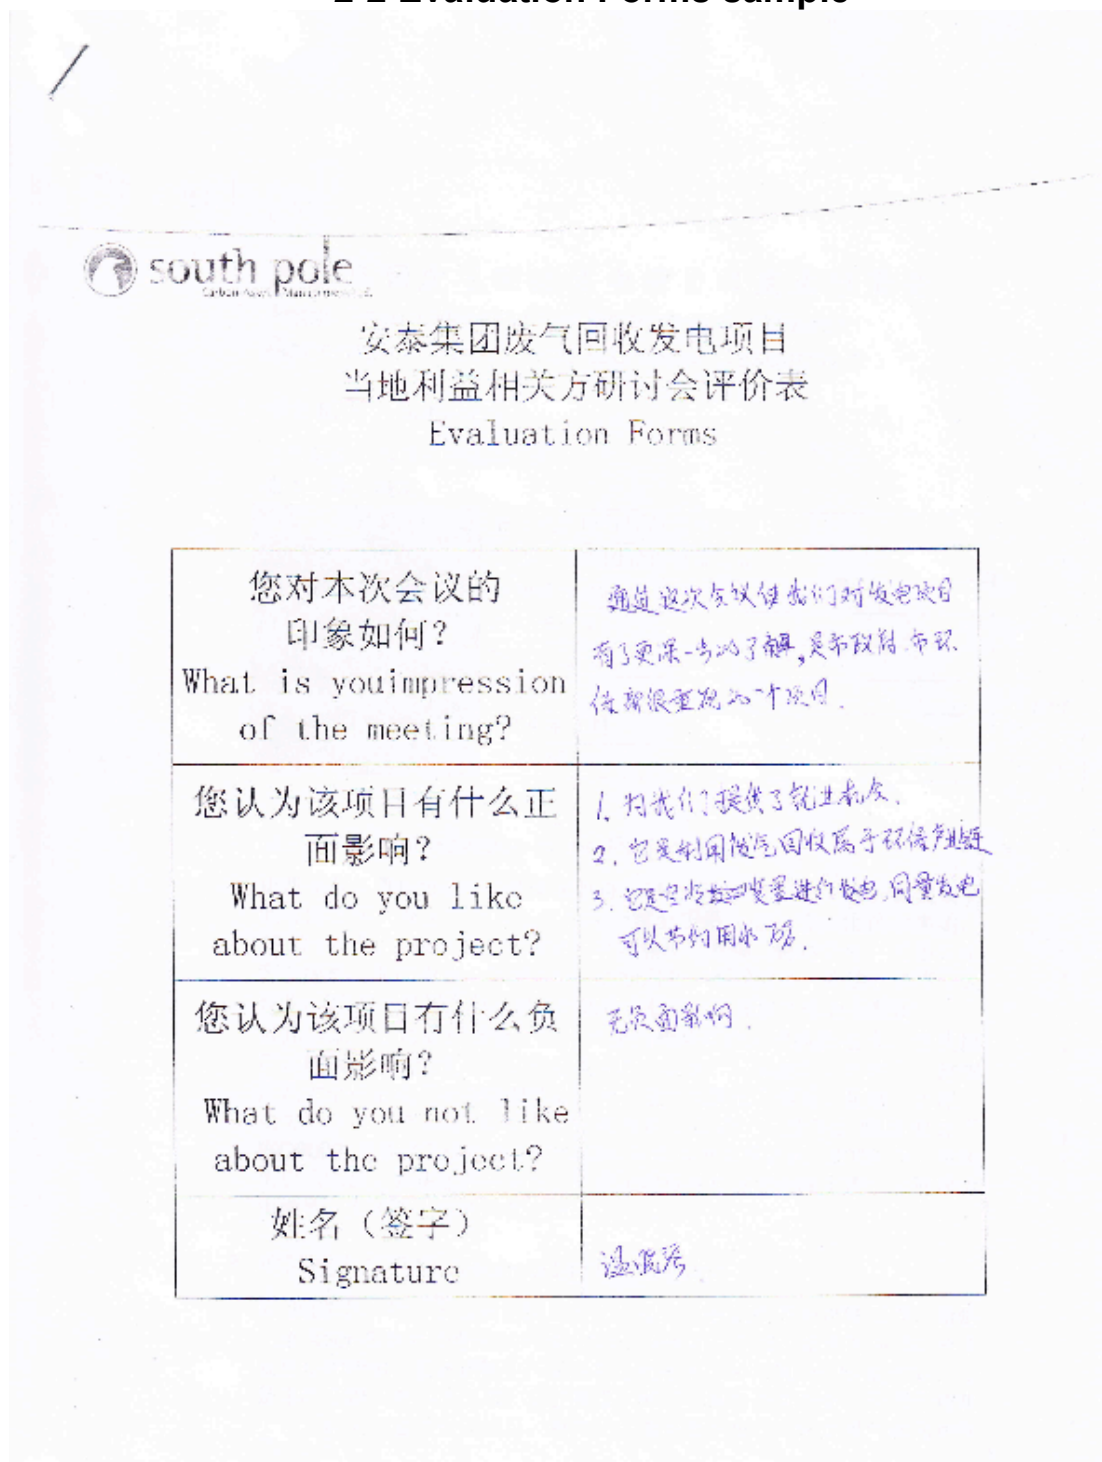 Evaluation Forms sample
south pole
安泰集团废气回收发电项目
当地利益相关方研讨会评价表
Evaluation Forms
您对本次会议的
印象如何？
What is youimpression
of the meeting?
通过这次会议使我们对发电项目
有了更深一步的了解，是市政府、市环
保都很重视的一个项目.
您认为该项目有什么正
面影响？
What do you like
about the project?
1. 为我们提供了就业机会.
2. 它是利用废气回收属于环保产业链
3. 它是空冷装置进行发电，同量发电
可以节约用水
您认为该项目有什么负
面影响？
What do you not like
about the project?
无负面影响.
姓名（签字）
Signature